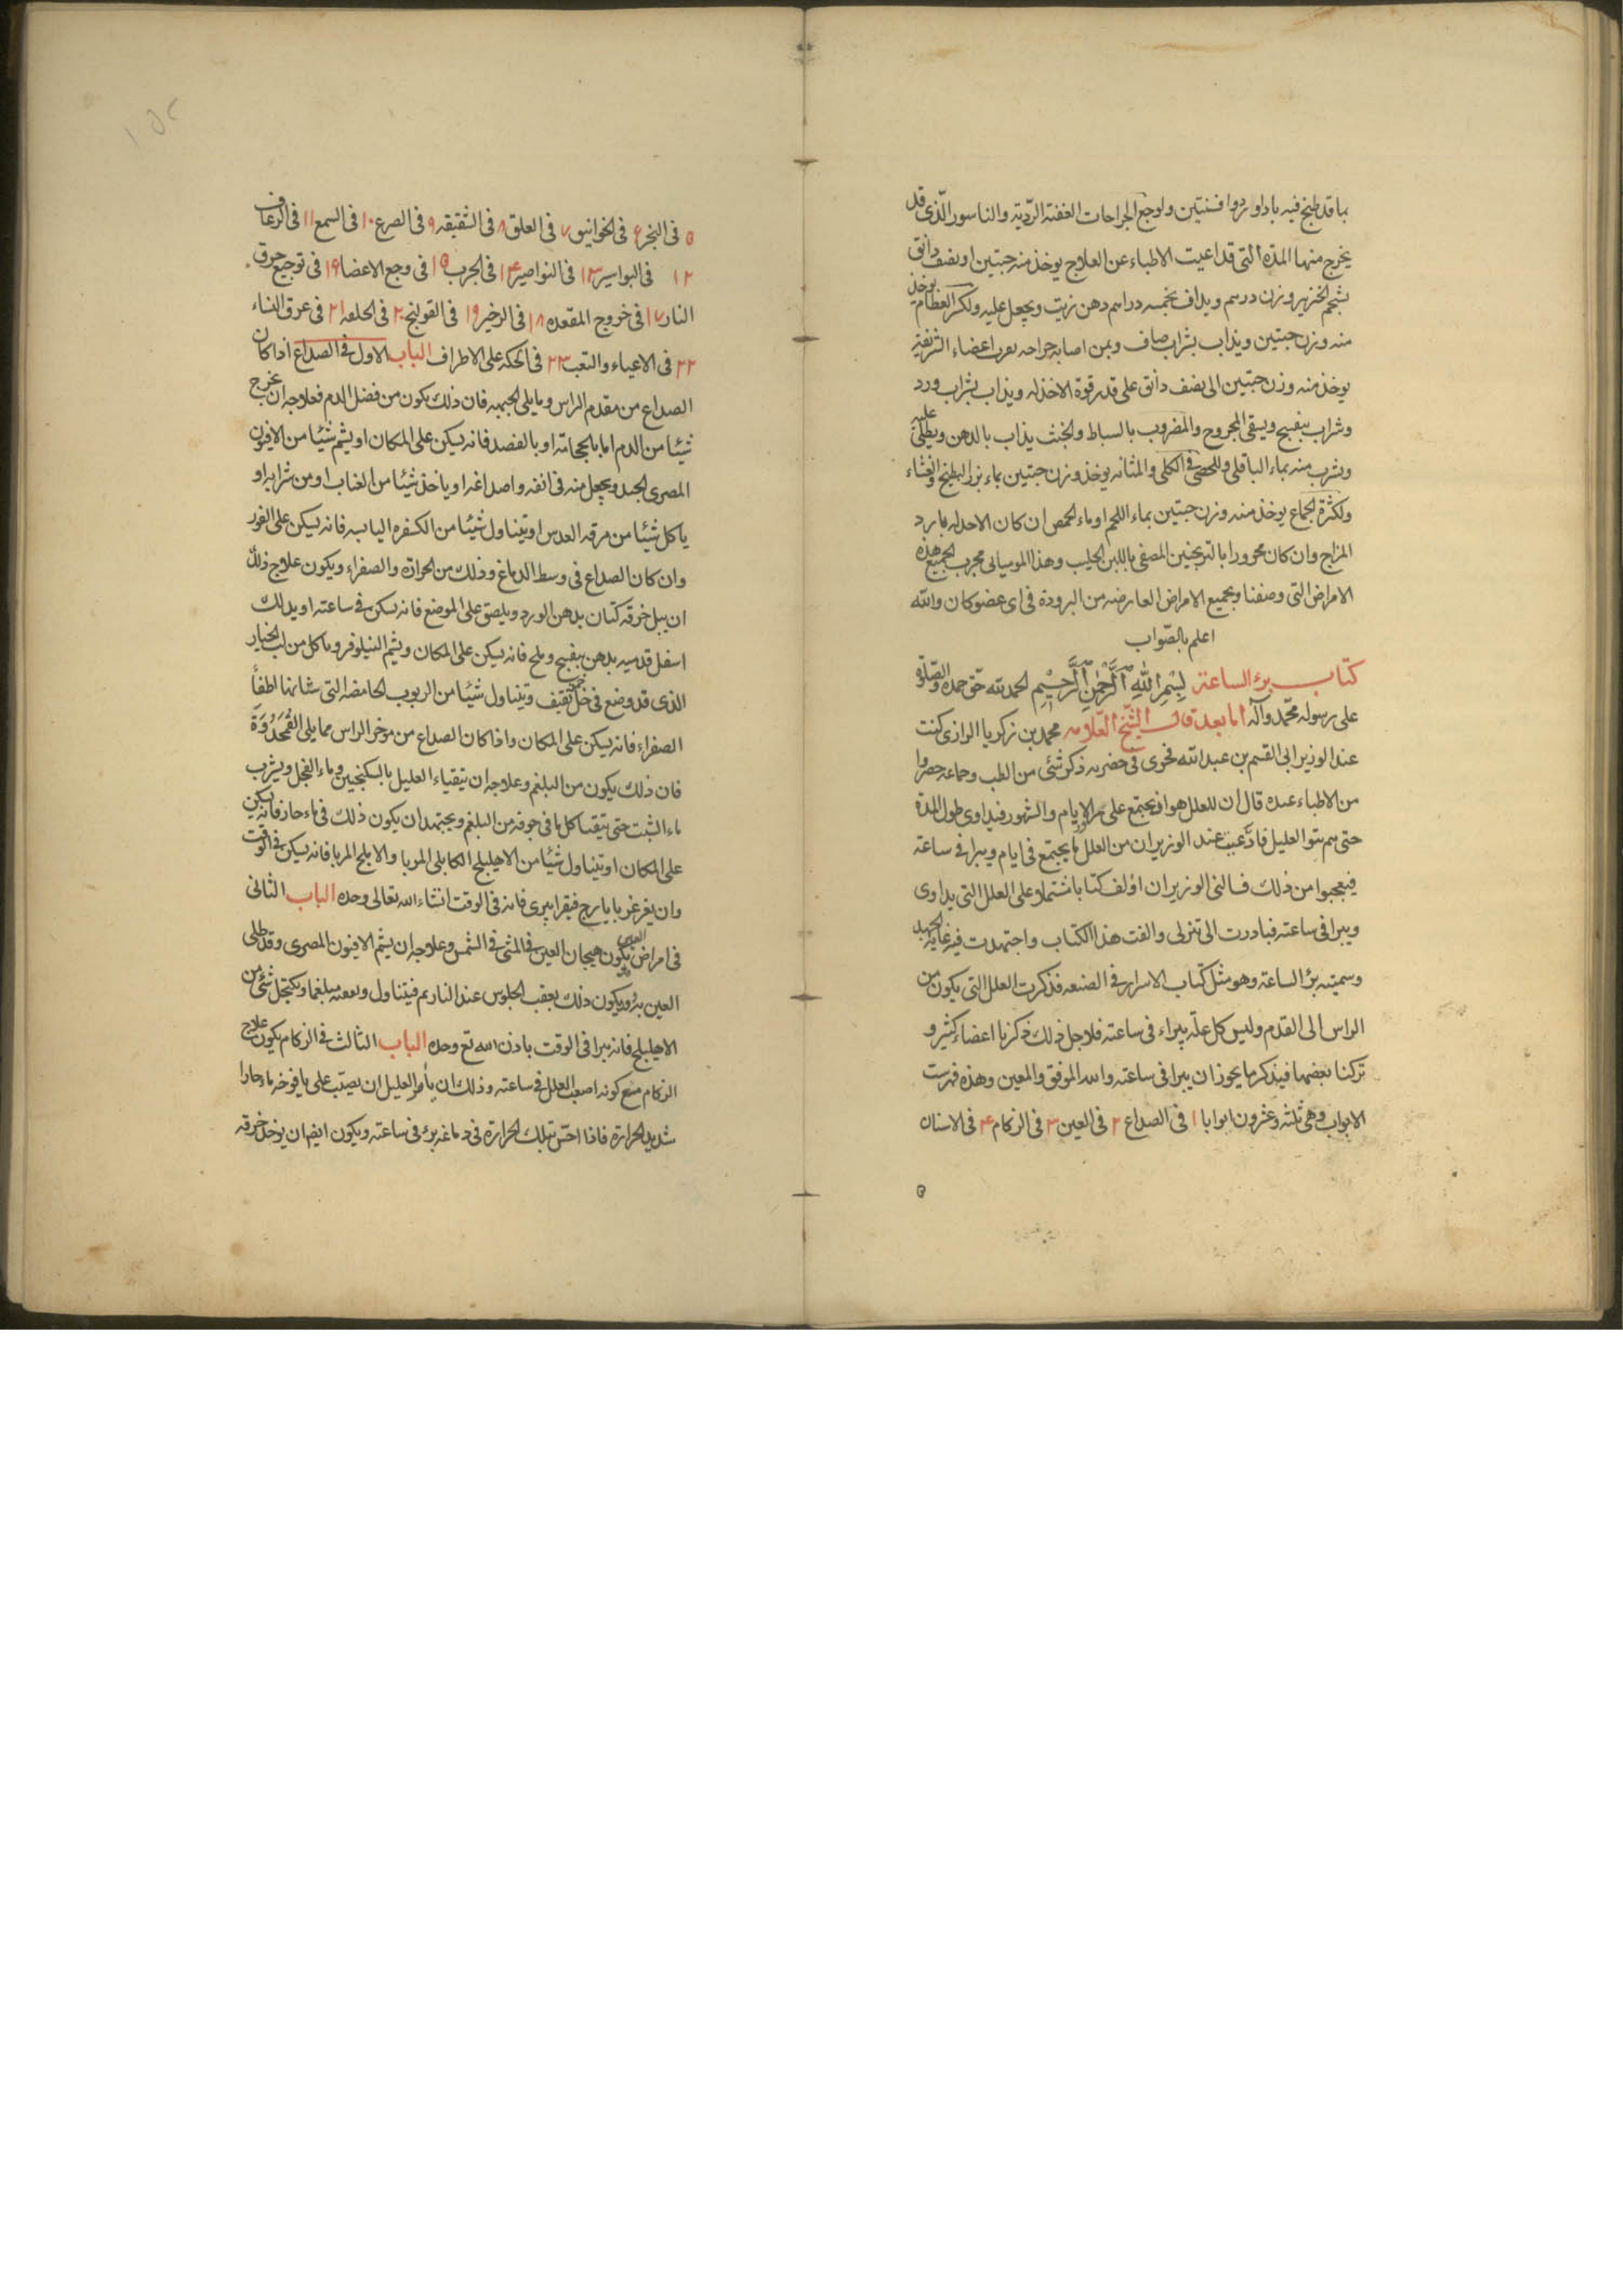 بما قد طبخ فيه باداورد وافسنتين ولوجع الجراحات العفنة الرّديّة والناسور الّذى قد
يخرج منها المدّة التى قد اعيت الاطباء عن العلاج يوخذ منه حبتين او نصف دانق
بشحم الخنزير وزن درهم ويداف بخمسه دراهم دهن زيت ويجعل عليه ولكسر العظام يوخذ
منه وزن حبتين ويذاب بشراب صاف وبمن اصابه جراحه بقرب اعضاء الشريفة
يوخذ منه وزن حبتين الى نصف دانق على قدر قوة الاخذ له ويذاب بشراب ورد
وشراب بنفسج ويسقى المجروح والمضروب بالسياط والخشب يذاب بالدهن ويطلى عليه
ويشرب منه بماء الباقلى وللحصى فى الكلى والمثانه يوخذ وزن حبتين بماء بزر البطيخ والقثاء
ولكثرة الجماع يوخذ منه وزن حبتين بماء اللحم او ماء الحمص ان كان الاخذ له بارد
المزاج وان كان محرورا بالترنجبين المصفى باللبن الحليب وهذا الموميائى مجرب لجميع هذه
الامراض التى وصفنا وبجميع الامراض العارضه من البرودة فى اى عضو كان والله
اعلم بالصّواب
كتاب برء الساعة بِسْمِ اللهِ الرَّحْمٰنِ الرَّحِيْمِ الحمد لله حقّ حمده والصّلوة
على رسوله محمّد وآله اما بعد قال الشّيخ العّلامه محمد بن زكريا الرازى كنت
عند الوزير ابى القسم بن عبد الله فجرى فى حضرته ذكر شئى من الطب وجماعه حضروا
من الاطباء عنده قال ان للعلل مواد يجتمع على مر الايام والشهور فيداوى طول المدة
حتى هم بتوا العليل عند الوزير ان من العلل ما يجتمع فى ايام ويبرا فى ساعة
فيعجبوا من ذلك فسالنى الوزير ان اؤلف كتابا شتملا على العلل التى يداوى
ويبرا فى ساعته فبادرت الى منزلى والفت هذا الكتاب واجتهدت فيه غاية الجهد
وسميته برؤ الساعة وهو مثل كتاب الاسرار فى الصنعه فذكرت العلل التى يكون من
الراس الى القدم وليس كل علّة يبراء فى ساعته فلاجل ذلك ذكرنا اعضاء كثير و
تركنا بعضها فيذكر ما يجوز ان يبرا فى ساعته والله الموفق والمعين وهذه فهرست
الابواب وهى ثلثه وعشرون ابوابا ١ فى الصداع ٢ فى العين ٣ فى الزكام ۴ فى الاسنان
۵
۵ فى البخر ۶ فى الخوانيق ٧ فى العلق ٨ فى الشقيقه ٩ فى الصرع ١٠ فى السمع ١١ فى الرعاف
١٢ فى البواسير ١٣ فى النواصير ١۴ فى الجرب ١۵ فى وجع الاعضا ١۶ فى توجيع حرق
النار ١٧ فى خروج المقعده ١٨ فى الزخير ١٩ فى القولنج ٢٠ فى الخلفه ٢١ فى عرق النساء
٢٢ فى الاعياء والتعب ٢٣ فى الحكه على الاطراف الباب الاول فى الصداع اذا كان
الصداع من مقدم الراس وما يلى الجبهه فان ذلك يكون من فضل الدم فعلاجه ان يخرج
شيئا من الدم اما بالحجامّة او بالفصد فانه يسكن على المكان او يشم شيئا من الافيون
المصرى الجيد ويجعل منه فى انفه واصداغه او ياخذ شيئا من العناب او من شرابه او
ياكل شيئا من مرقه العدس او يتناول شيئا من الكسفره اليابسه فانه يسكن على الفور
وان كان الصداع فى وسط الدماغ وذلك من الحرارة والصفراء ويكون علاج ذلك
ان يبل خرقه كتان بدهن الورد ويلصق على الموضع فانه يسكن فى ساعته او يدلك
اسفل قدميه بدهن بنفسج وملح فانه يسكن على المكان ويشم النيلوفر وياكل من لب الخيار
الذى قد وضع فى خل خمر ثقيف ويتناول شيئا من الربوب الحامضه التى شانها اطفأ
الصفراء فانه يسكن على المكان واذا كان الصداع من موخر الراس مما يلى القُمَحْدُوَة
فان ذلك يكون من البلغم وعلاجه ان يتقياء العليل بالسكنجبين وماء الفجل ويشرب
ماء الشبت حتى يتقيا كل ما فى جوفه من البلغم ويجتهد ان يكون ذلك فى ماء حار فانه يسكن
على المكان او يتناول شيئا من الاهليلج الكابلى المربا والاملج المربا فانه يسكن فى الوقت
وان يغرغر بايارج فيقرا يبرى فانه فى الوقت انشاء الله تعالى وحده الباب الثانى
فى امراض العين يكون هيجان العين فى المشى فى الشمس وعلاجه ان يشم الافيون المصرى وقد طلى
العين به ويكون ذلك بعقب الجلوس عند النار ثم فيتناول ويكتحل شئى من
الاهليلج فانه يبرا فى الوقت باذن الله تع وحده الباب الثالث فى الزكام يكون علاج
الزكام مع كونه اصعب العلل فى ساعته وذلك ان يأمر العليل ان يصبّ على يافوخه ماء حارا
شديد الحرارة فاذا احسّ بتلك الحرارة فى دماغه برئ فى ساعته ويكون ايضا ان يوخذ خرقه